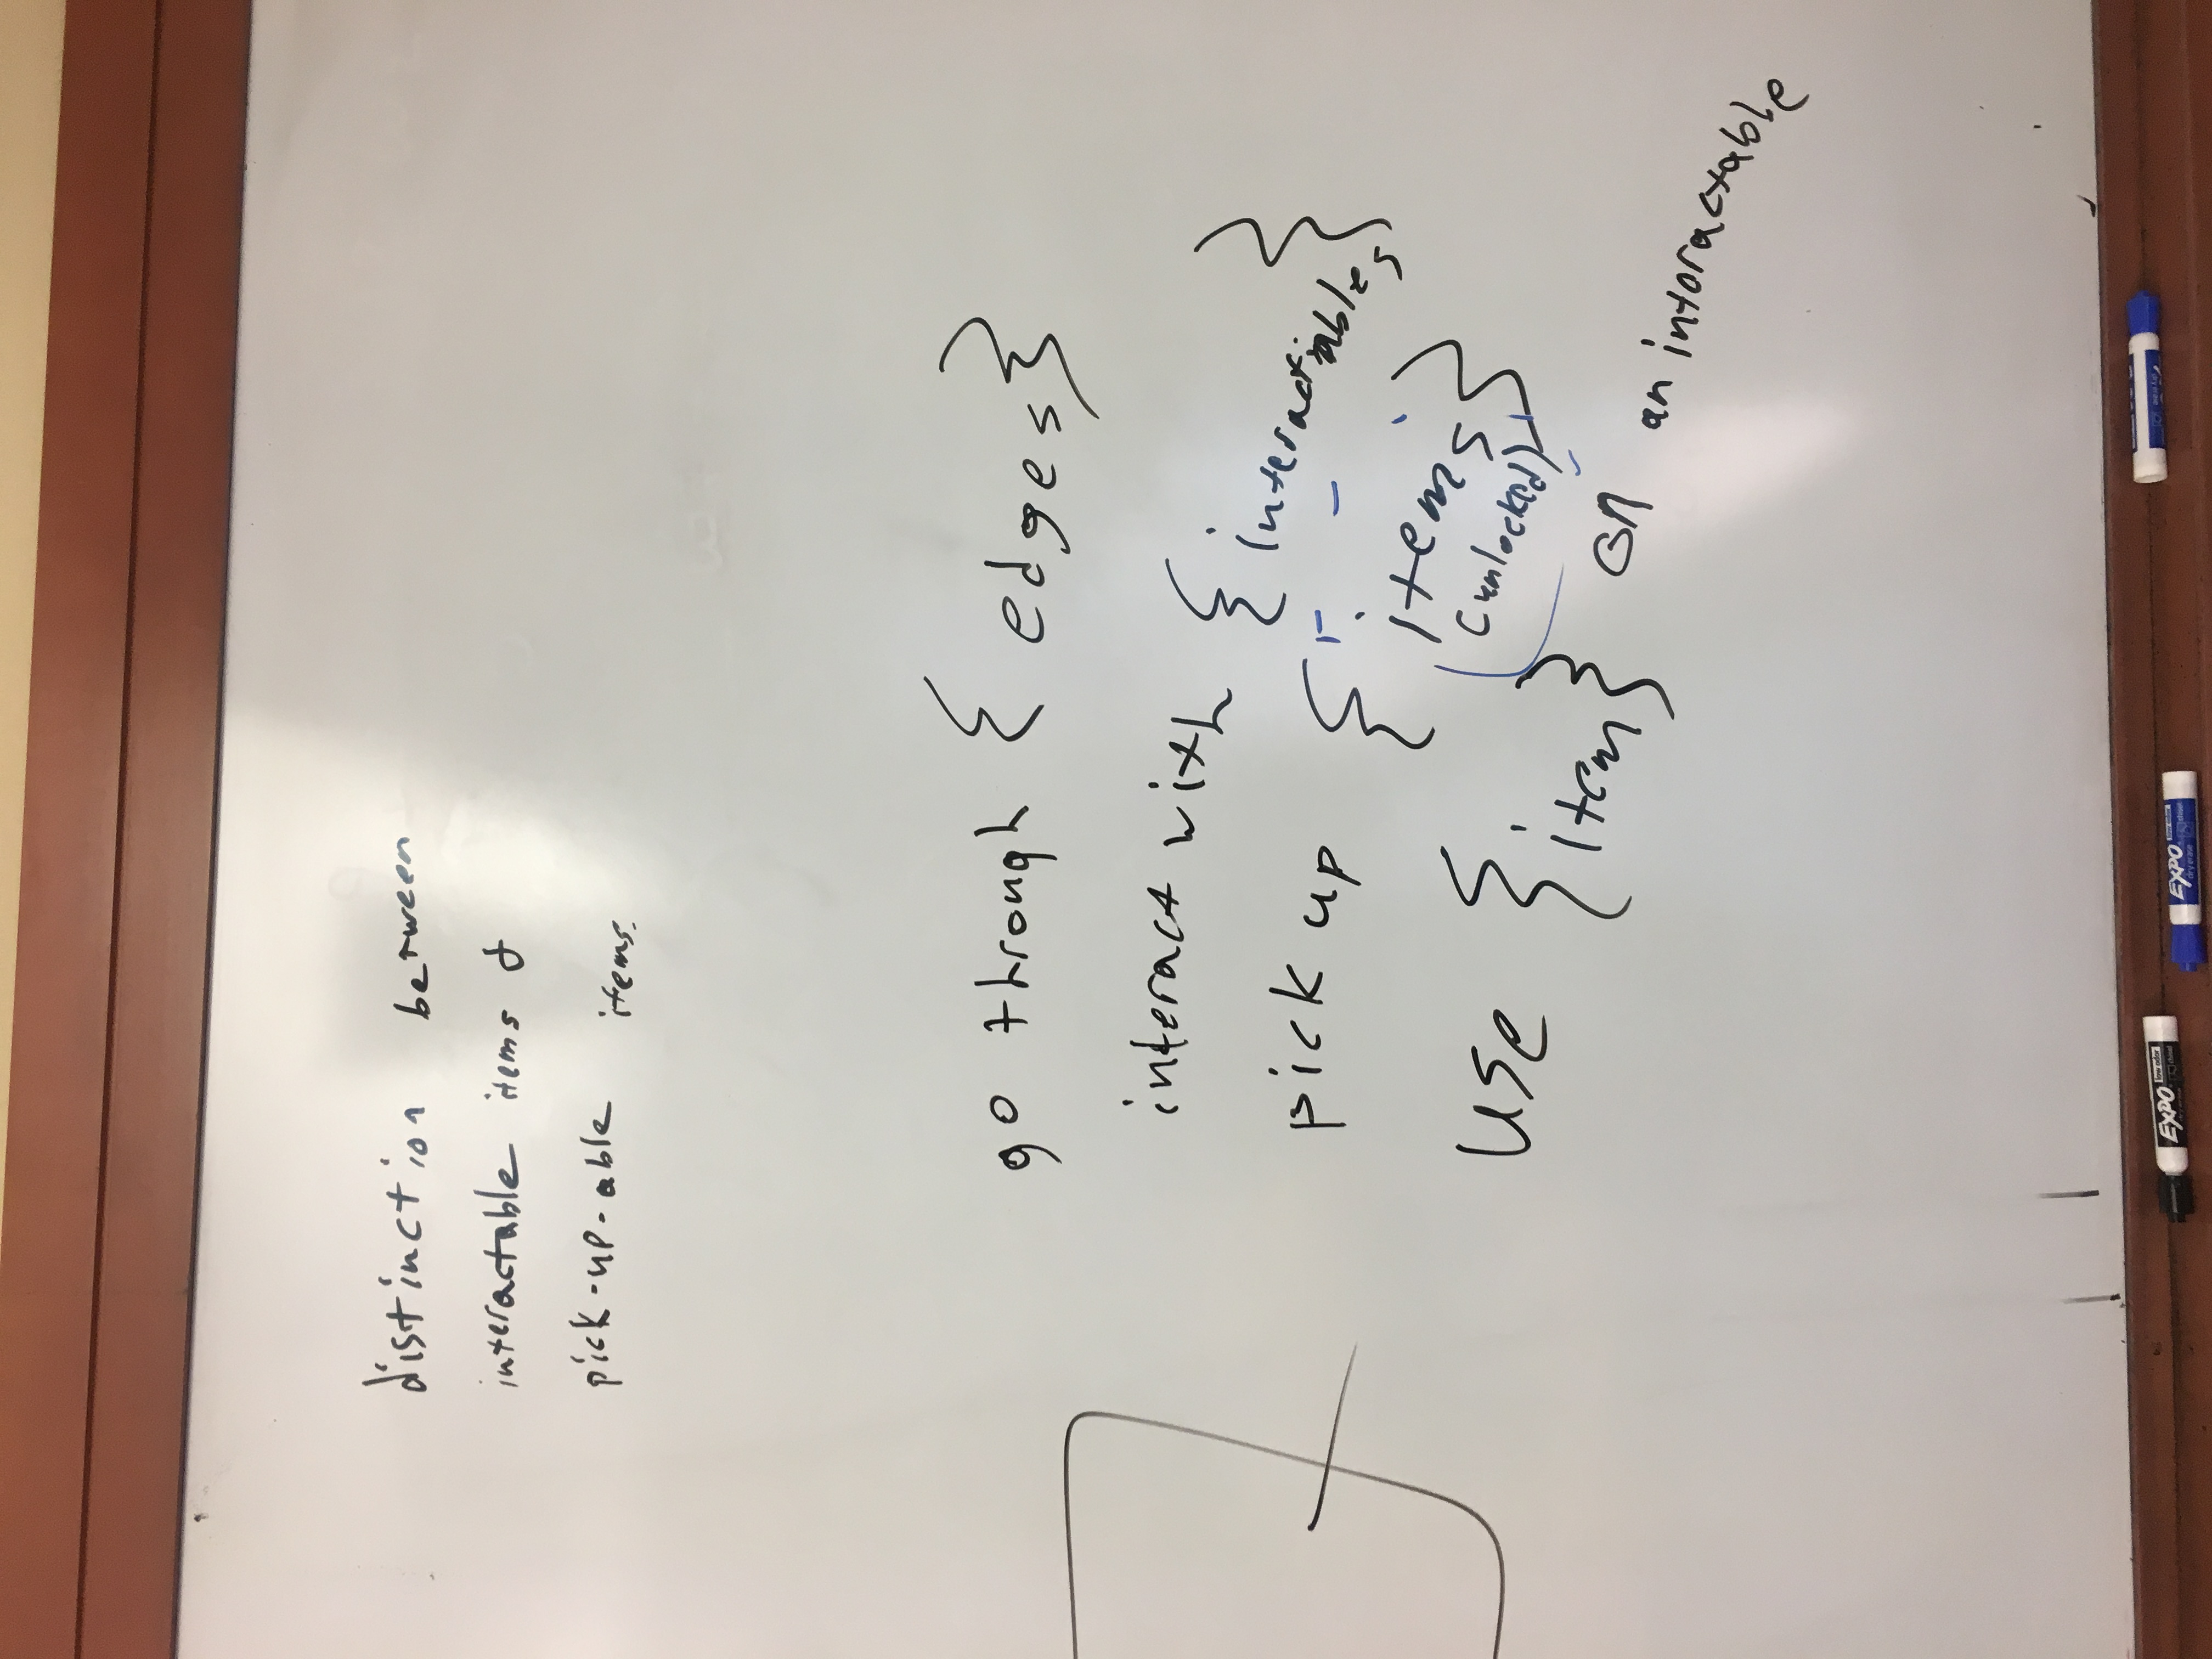 distinction between
interactable items &
pick-up-able items.
go through { edges }
interact with { interactables }
pick up { items }
(unlocked)
use { item } on an interactable
EXPO low odor
dry erase chisel
EXPO low odor
dry erase chisel